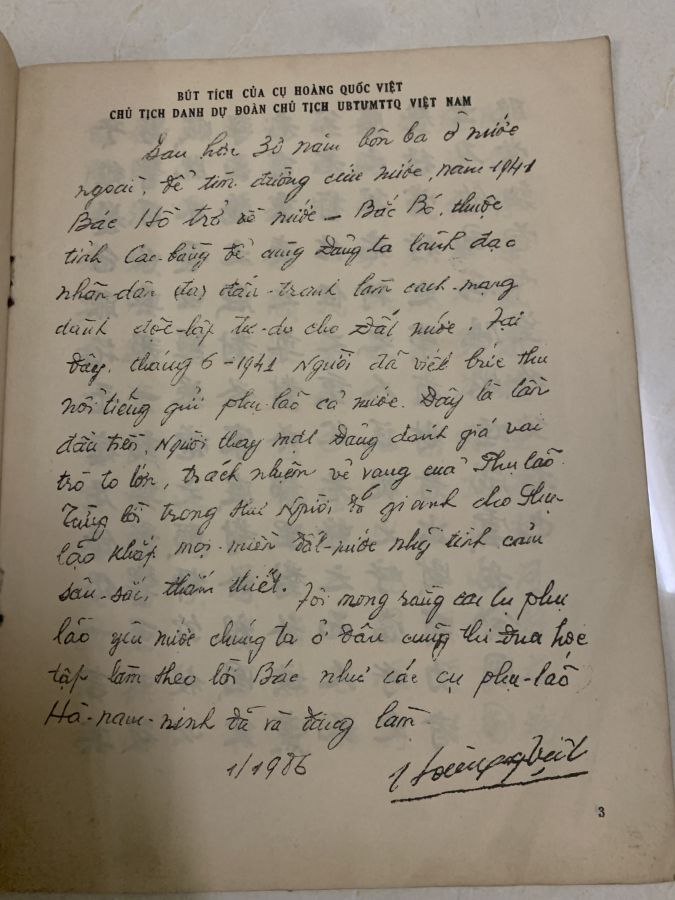 BÚT TÍCH CỦA CỤ HOÀNG QUỐC VIỆT
CHỦ TỊCH DANH DỰ ĐOÀN CHỦ TỊCH UBTƯMTTQ VIỆT NAM
Sau hơn 30 năm bôn ba ở nước
ngoài, để tìm đường cứu nước, năm 1941
Bác Hồ trở về nước - Bắc Bó, thuộc
tỉnh Cao-bằng để cùng Đảng ta lãnh đạo
nhân-dân (ta) đấu-tranh làm cách-mạng
dành độc-lập tự-do cho Đất nước. Tại
Đây, tháng 6-1941 Người đã viết bức thư
nổi tiếng gửi phụ-lão cả nước. Đây là lần
đầu tiên, Người thay mặt Đảng đánh giá vai
trò to lớn, trách nhiệm vẻ vang của Phụ lão.
Từng lời trong thư Người giành cho Phụ-
lão khắp mọi-miền đất-nước những tình cảm
sâu-sắc, thắm thiết. Tôi mong rằng các cụ phụ
lão yêu nước chúng ta ở đâu cũng thi đua học
tập làm theo lời Bác như các cụ phụ-lão
Hà-nam-ninh đã và đang làm.
1/1986
Hoàng Quốc Việt
3